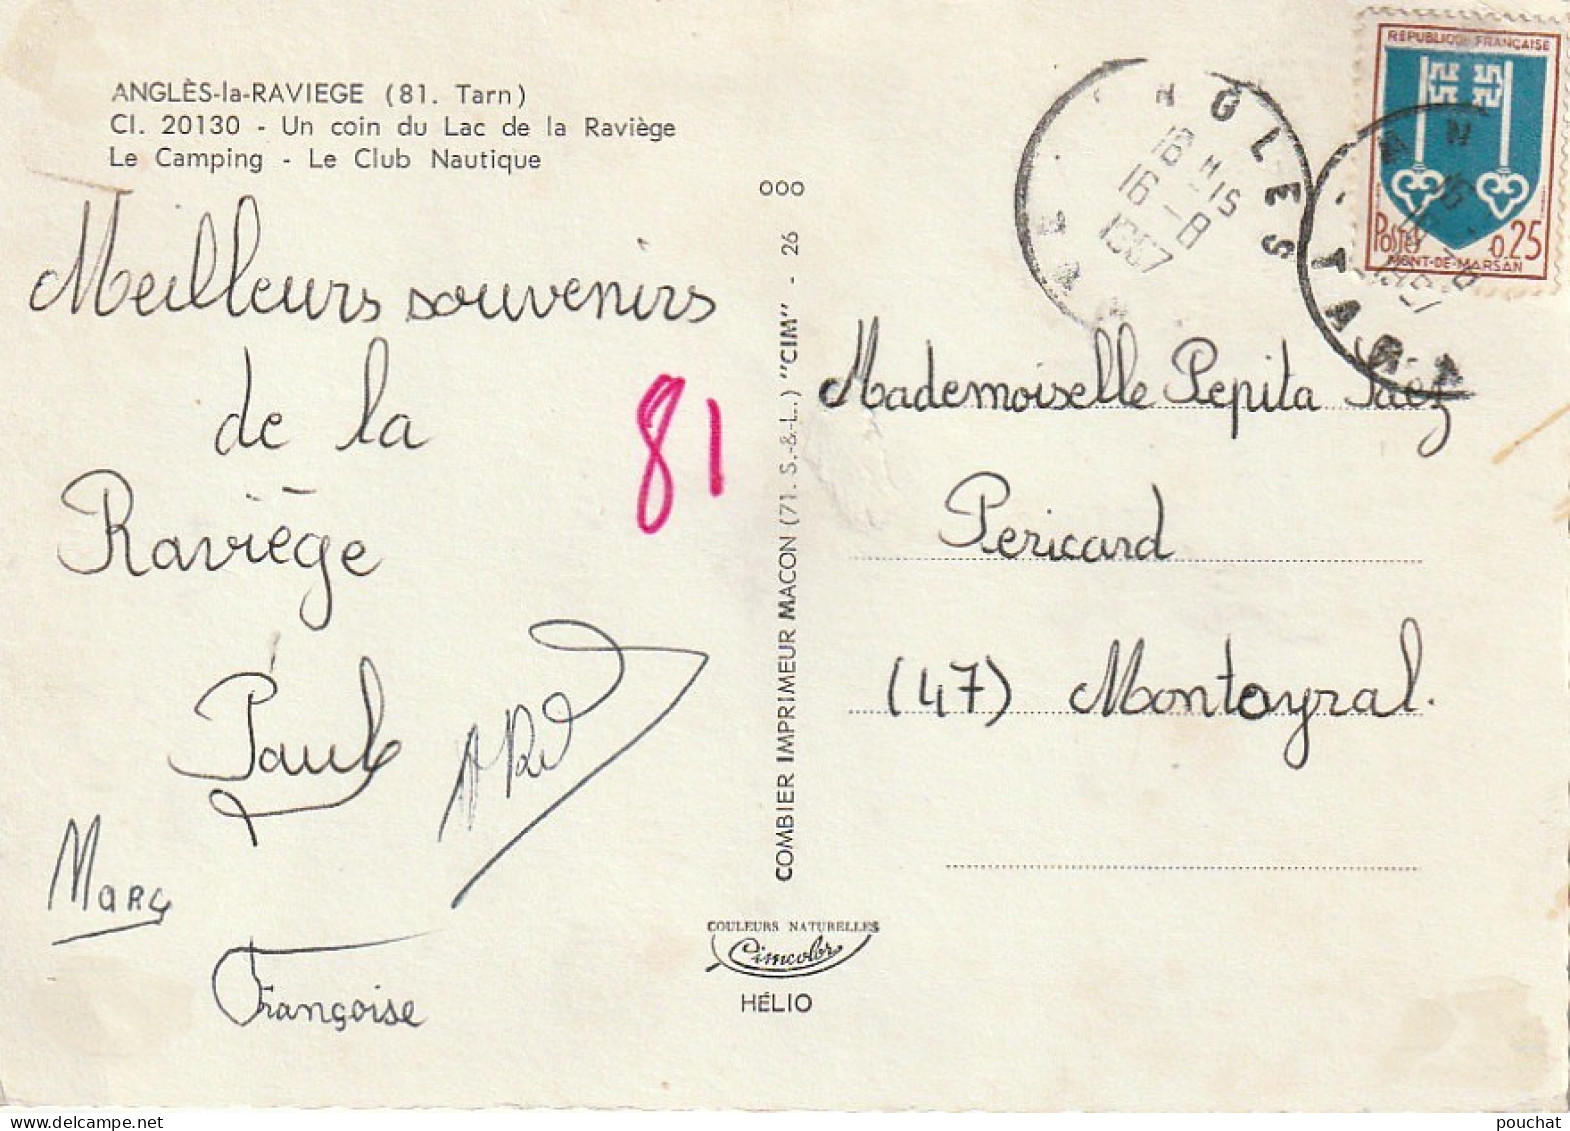 ANGLÈS-la-RAVIEGE (81. Tarn)
Cl. 20130 - Un coin du Lac de la Raviège
Le Camping - Le Club Nautique
Meilleurs souvenirs
de la
Raviège
Paul
Marc
Françoise
81
000
COMBIER IMPRIMEUR MACON (71. S.-&-L.) "CIM" - 26
COULEURS NATURELLES
Cimcolor
HÉLIO
NGLES
18 H 15
16 - 8
1967
TARN
REPUBLIQUE FRANÇAISE
POSTES
0,25
MONT-DE-MARSAN
Mademoiselle Pepita Saez
Pericard
(47) Montayral.
pouchat